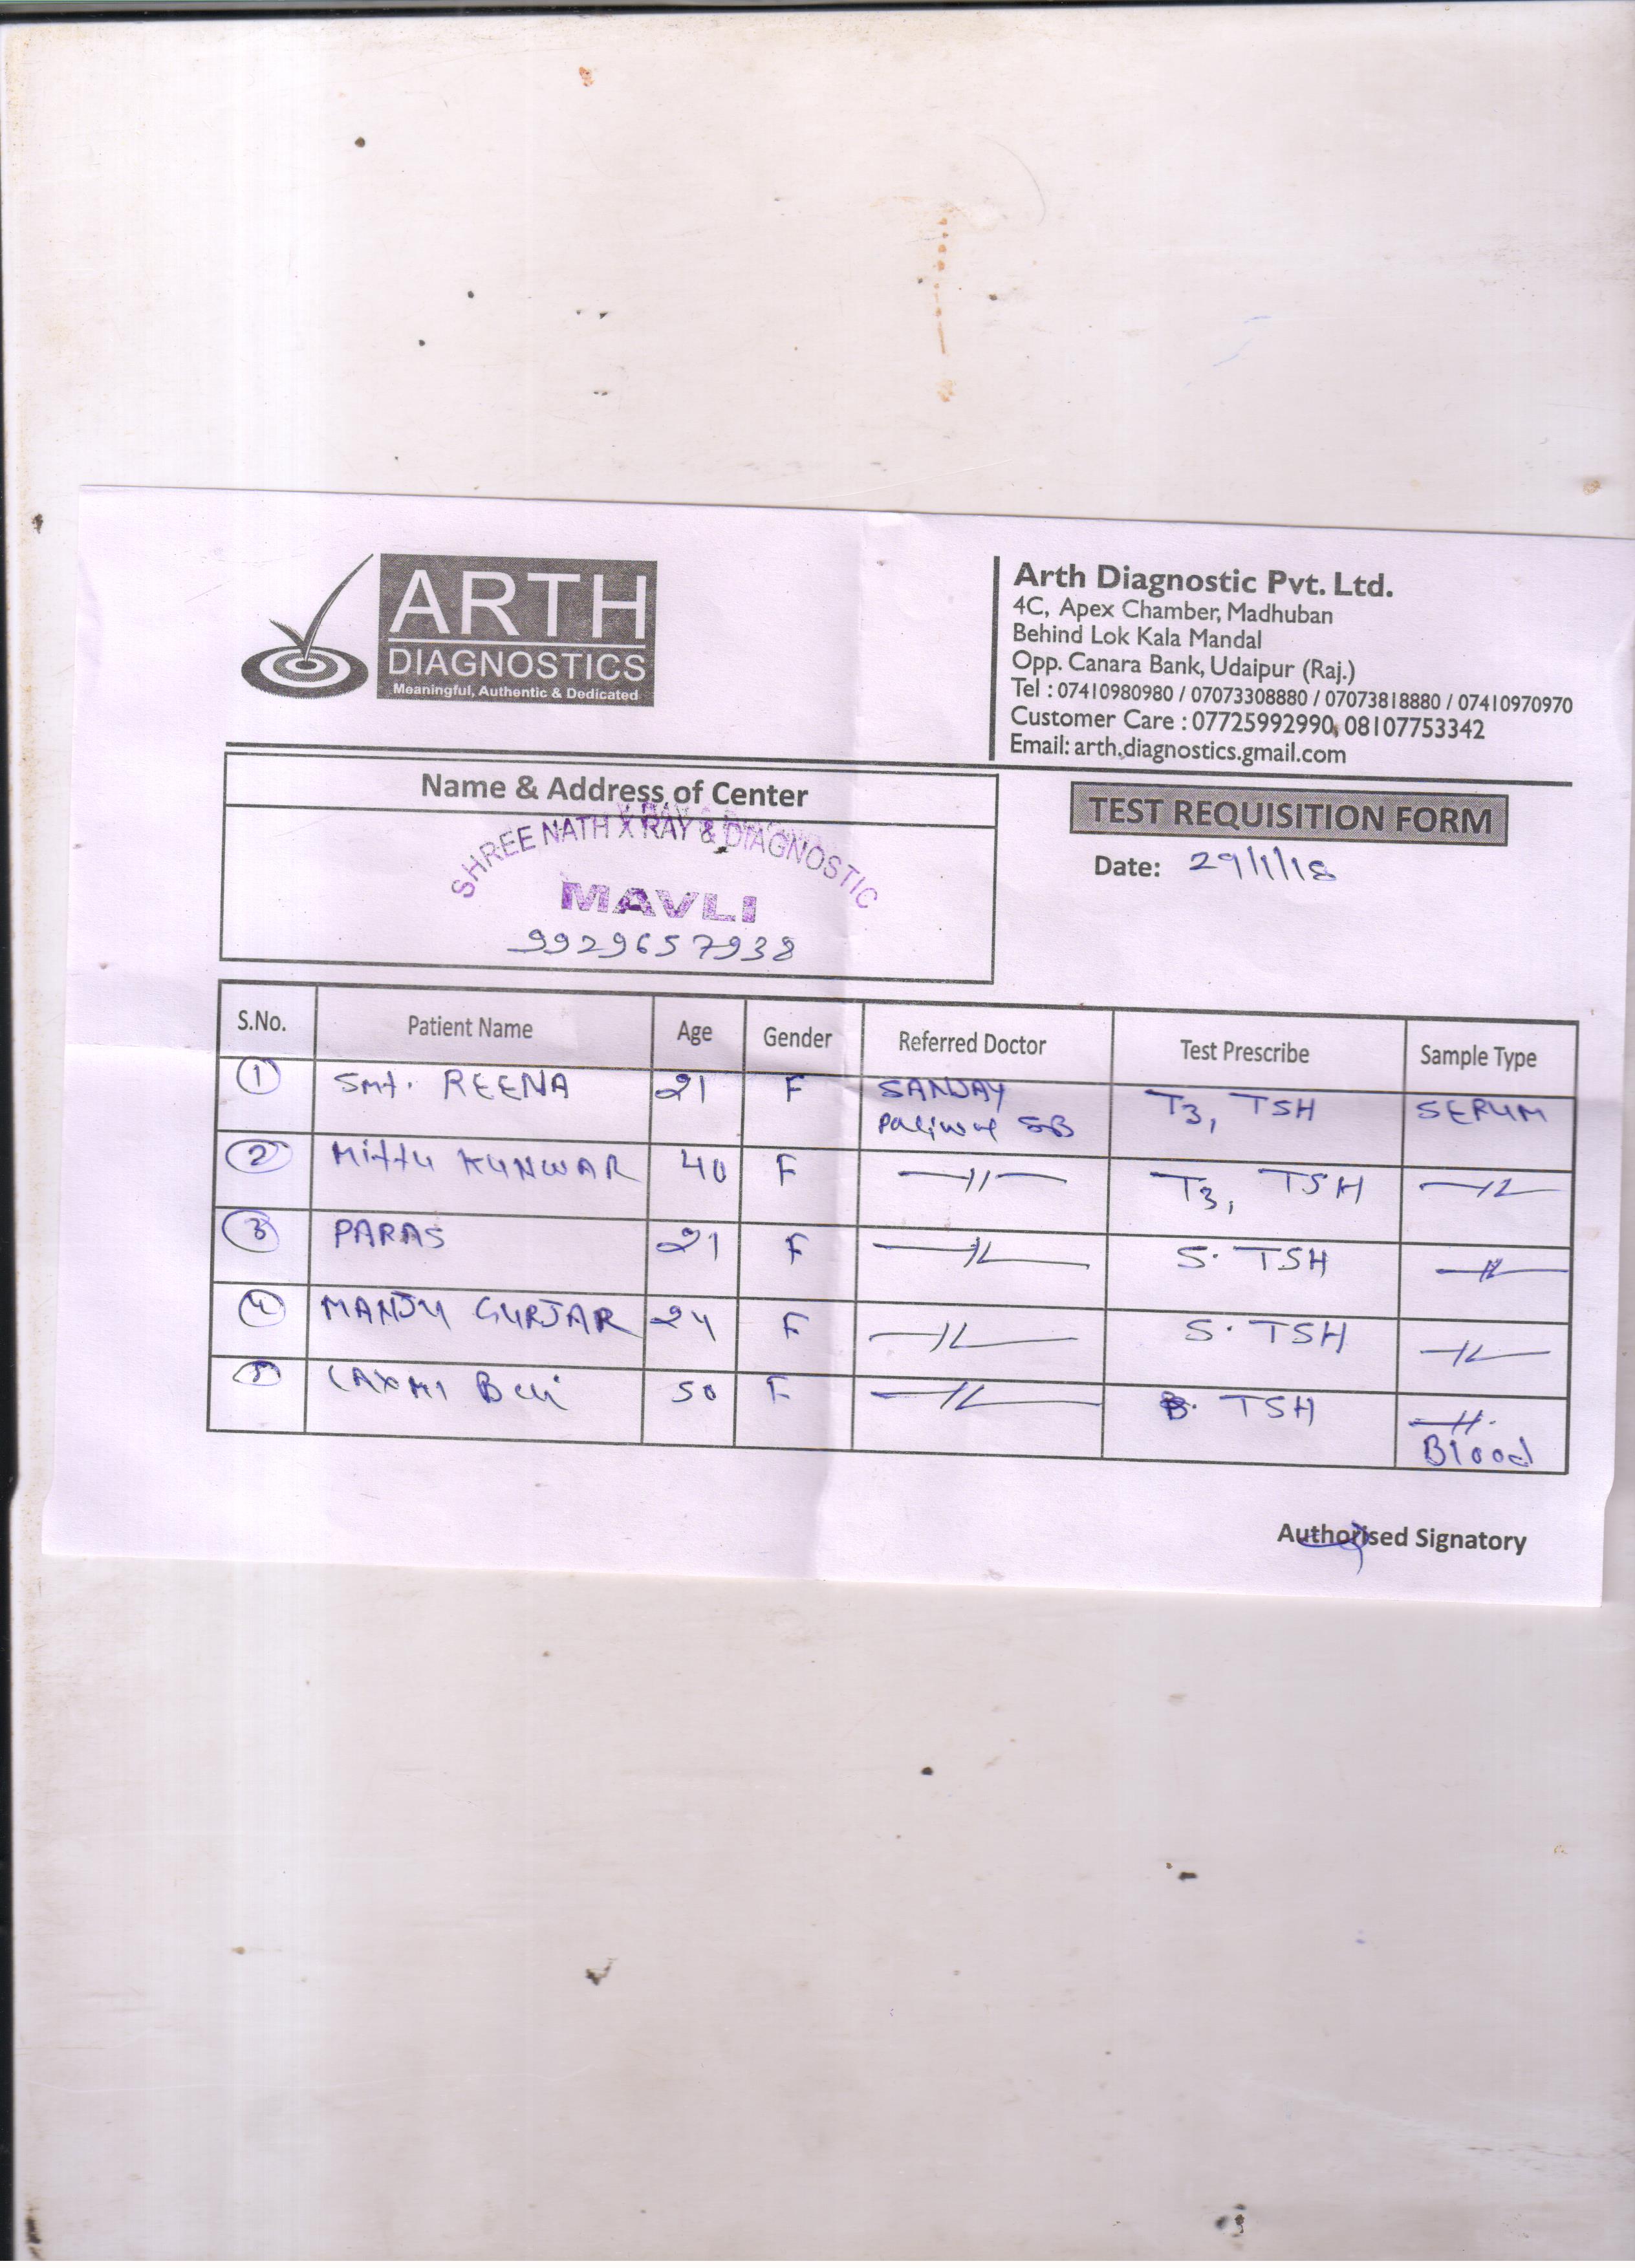 ARTH
DIAGNOSTICS
Meaningful, Authentic & Dedicated
Arth Diagnostic Pvt. Ltd.
4C, Apex Chamber, Madhuban
Behind Lok Kala Mandal
Opp. Canara Bank, Udaipur (Raj.)
Tel : 07410980980 / 07073308880 / 07073818880 / 07410970970
Customer Care : 07725992990, 08107753342
Email: arth.diagnostics.gmail.com
Name & Address of Center
SHREE NATH X RAY & DIAGNOSTIC
MAVLI
9929657938
TEST REQUISITION FORM
Date: 29/1/18
S.No. Patient Name Age Gender Referred Doctor Test Prescribe Sample Type
1 Smt. REENA 21 F SANJAY T3, TSH SERUM
Paliwal SB
2 Mittu KUNWAR 40 F —||— T3, TSH —||—
3 PARAS 21 F —||— S. TSH —||—
4 MANJU GURJAR 24 F —||— S. TSH —||—
5 LAXMI 50 F —||— B. TSH —||—
Blood
Authorised Signatory